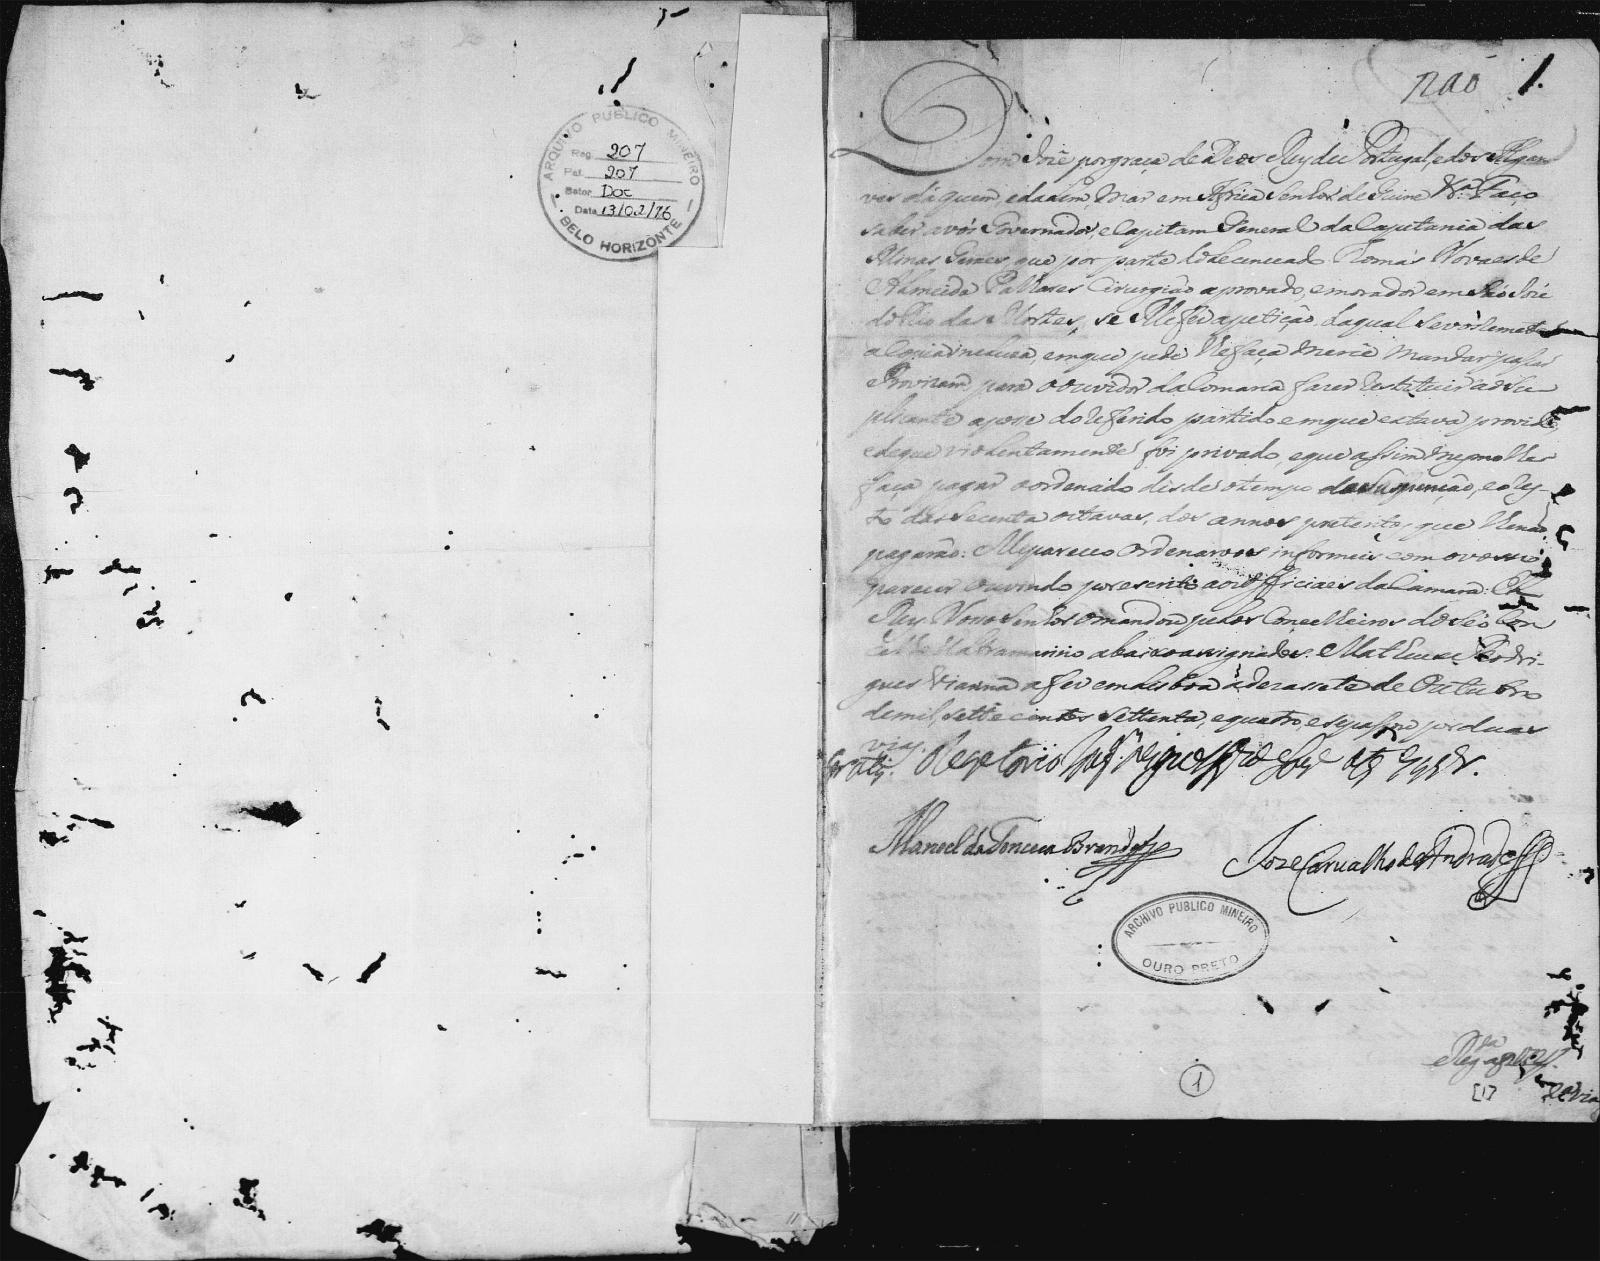 ARQUIVO PUBLICO MINEIRO
Reg. 207
Pat. 207
Setor Doc
Data 13/02/76
BELO HORIZONTE
não 1.
Dom Jozé por graça de Deos Rey de Portugal, e dos Algar
ves dáquem, e dalém, Mar em Africa Senhor de Guiné &.ª Faço
saber a vós Governador, e Capitam General da Capitania das
Minas Geraes, que por parte do Lecenceado Tomás Novaes de
Almeida Cirurgião aprovado, e morador em São José
do Rio das Mortes, se Me fez a petição, da qual se vos remete
a Copia incluza, em que pede lhe faça merce mandar passar
Provizam para o ouvidor da Comarca fazer restetuir ao Su
plicante a posse do referido partido em que estava provido,
e de que violentamente foi privado, e que assim mesmo lhe
faça pagar o ordenado desde o tempo da Suspenção, e o res
to das secenta oitavas, dos annos preterito, que lhe não
pagarão: Me pareceo ordenarvos informeis com o vosso
parecer ouvindo por escrito aos officiaes da Camara: El
Rey Nosso Senhor o mandou pelos Conselheiros do Seo Con
celho Ultramarino abaixo assignados. Matheus Rodri-
gues Vianna a fez em Lisboa a dezassete de Outubro
de mil, sette centos settenta, e quatro, e se passou por duas
vias.
gratis.
Manoel da Fonceca Brandão
Joze Carvalho de Andrade
ARCHIVO PUBLICO MINEIRO
OURO PRETO
Reg.da
[1]
1
2.ª via